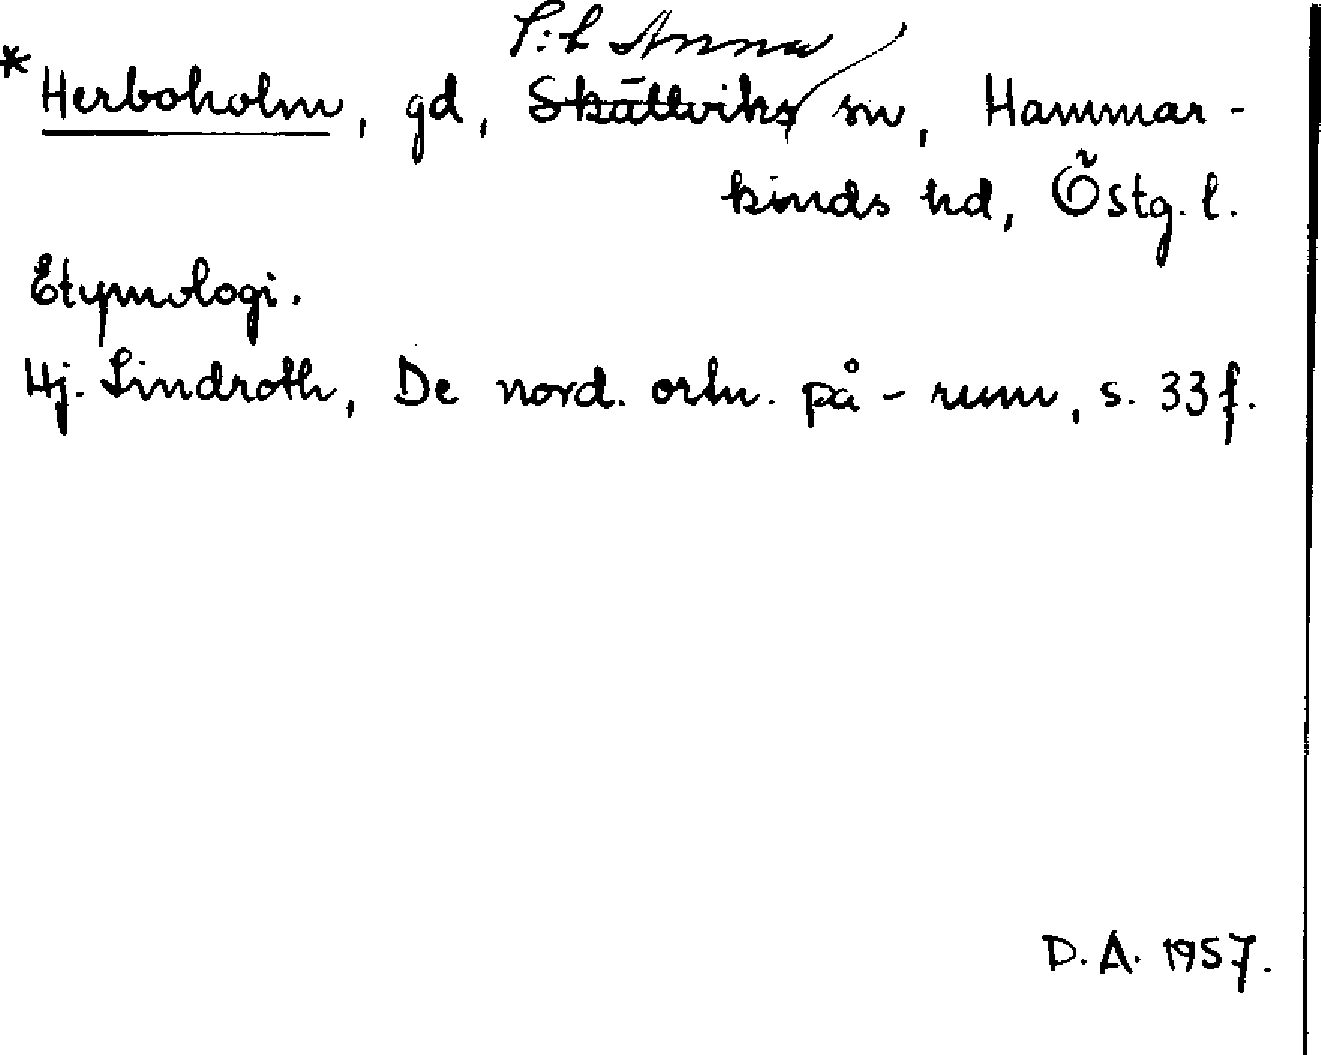 S:t Anna
* Herboholm, gd, Skällviks sn, Hammar-
kinds hd, Östg. l.
Etymologi.
Hj. Lindroth, De nord. ortn. på -rum, s. 33 f.
D. A. 1957.